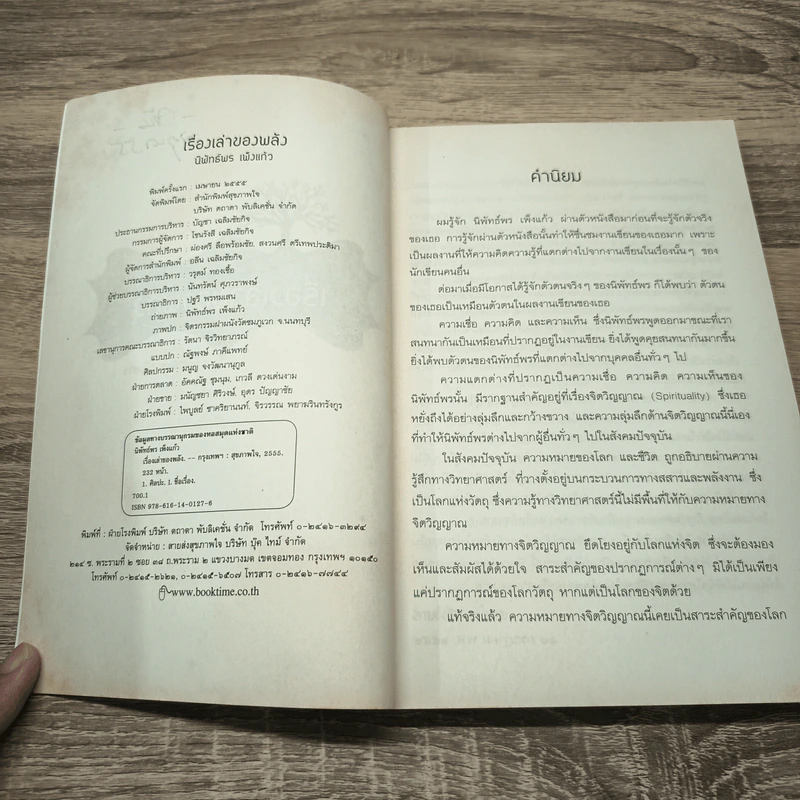 เรื่องเล่าของพลัง
นิพัทธ์พร เพ็งแก้ว
พิมพ์ครั้งแรก : เมษายน ๒๕๕๕
จัดพิมพ์โดย : สำนักพิมพ์สุขภาพใจ
บริษัท ตถาตา พับลิเคชั่น จำกัด
ประธานกรรมการบริหาร : บัญชา เฉลิมชัยกิจ
กรรมการผู้จัดการ : โชนรังสี เฉลิมชัยกิจ
คณะที่ปรึกษา : ผ่องศรี ลือพร้อมชัย, สงวนศรี ตรีเทพประติมา
ผู้จัดการสำนักพิมพ์ : อสีน เฉลิมชัยกิจ
บรรณาธิการบริหาร : วรุตม์ ทองเชื้อ
ผู้ช่วยบรรณาธิการบริหาร : นันทรัตน์ ศุภวราพงษ์
บรรณาธิการ : ปฐวี พรหมเสน
ถ่ายภาพ : นิพัทธ์พร เพ็งแก้ว
ภาพปก : จิตรกรรมฝาผนังวัดชมภูเวก จ.นนทบุรี
เลขานุการคณะบรรณาธิการ : รัตนา จิรวิทยาภรณ์
แบบปก : ณัฐพงษ์ ภาคีแพทย์
ศิลปกรรม : มนูญ จงวัฒนานุกูล
ฝ่ายการตลาด : อัคคณัฐ ชุมนุม, เกวลี ดวงเด่นงาม
ฝ่ายขาย : มนัญชยา ศิริวงษ์, อุดร ปัญญาชัย
ฝ่ายโรงพิมพ์ : ไพบูลย์ ชาคริยานนท์, จิรวรรณ พยามรินทรังกูร
ข้อมูลทางบรรณานุกรมของหอสมุดแห่งชาติ
นิพัทธ์พร เพ็งแก้ว
เรื่องเล่าของพลัง. -- กรุงเทพฯ : สุขภาพใจ, 2555.
232 หน้า.
1. ศิลปะ. I. ชื่อเรื่อง.
700.1
ISBN 978-616-14-0127-6
พิมพ์ที่ : ฝ่ายโรงพิมพ์ บริษัท ตถาตา พับลิเคชั่น จำกัด โทรศัพท์ ๐-๒๔๑๖-๓๒๙๔
จัดจำหน่าย : สายส่งสุขภาพใจ บริษัท บุ๊ค ไทม์ จำกัด
๒๑๔ ซ. พระรามที่ ๒ ซอย ๓๘ ถ.พระราม ๒ แขวงบางมด เขตจอมทอง กรุงเทพฯ ๑๐๑๕๐
โทรศัพท์ ๐-๒๔๑๕-๒๖๒๑, ๐-๒๔๑๕-๖๕๐๗ โทรสาร ๐-๒๔๑๖-๗๗๔๔
www.booktime.co.th
คำนิยม
ผมรู้จัก นิพัทธ์พร เพ็งแก้ว ผ่านตัวหนังสือมาก่อนที่จะรู้จักตัวจริง
ของเธอ การรู้จักผ่านตัวหนังสือนั้นทำให้ชื่นชมงานเขียนของเธอมาก เพราะ
เป็นผลงานที่ให้ความคิดความรู้ที่แตกต่างไปจากงานเขียนในเรื่องนั้นๆ ของ
นักเขียนคนอื่น
ต่อมาเมื่อมีโอกาสได้รู้จักตัวตนจริงๆ ของนิพัทธ์พร ก็ได้พบว่า ตัวตน
ของเธอเป็นเหมือนตัวตนในผลงานเขียนของเธอ
ความเชื่อ ความคิด และความเห็น ซึ่งนิพัทธ์พรพูดออกมาขณะที่เรา
สนทนากันเป็นเหมือนที่ปรากฏอยู่ในงานเขียน ยิ่งได้พูดคุยสนทนากันมากขึ้น
ยิ่งได้พบตัวตนของนิพัทธ์พรที่แตกต่างไปจากบุคคลอื่นทั่วๆ ไป
ความแตกต่างที่ปรากฏเป็นความเชื่อ ความคิด ความเห็นของ
นิพัทธ์พรนั้น มีรากฐานสำคัญอยู่ที่เรื่องจิตวิญญาณ (Spirituality) ซึ่งเธอ
หยั่งถึงได้อย่างลุ่มลึกและกว้างขวาง และความลุ่มลึกด้านจิตวิญญาณนี้นี่เอง
ที่ทำให้นิพัทธ์พรต่างไปจากผู้อื่นทั่วๆ ไปในสังคมปัจจุบัน
ในสังคมปัจจุบัน ความหมายของโลก และชีวิต ถูกอธิบายผ่านความ
รู้สึกทางวิทยาศาสตร์ ที่วางตั้งอยู่บนกระบวนการทางสสารและพลังงาน ซึ่ง
เป็นโลกแห่งวัตถุ ซึ่งความรู้ทางวิทยาศาสตร์นี้ไม่มีพื้นที่ให้กับความหมายทาง
จิตวิญญาณ
ความหมายทางจิตวิญญาณ ยึดโยงอยู่กับโลกแห่งจิต ซึ่งจะต้องมอง
เห็นและสัมผัสได้ด้วยใจ สาระสำคัญของปรากฏการณ์ต่างๆ มิได้เป็นเพียง
แค่ปรากฏการณ์ของโลกวัตถุ หากแต่เป็นโลกของจิตด้วย
แท้จริงแล้ว ความหมายทางจิตวิญญาณนี้เคยเป็นสาระสำคัญของโลก